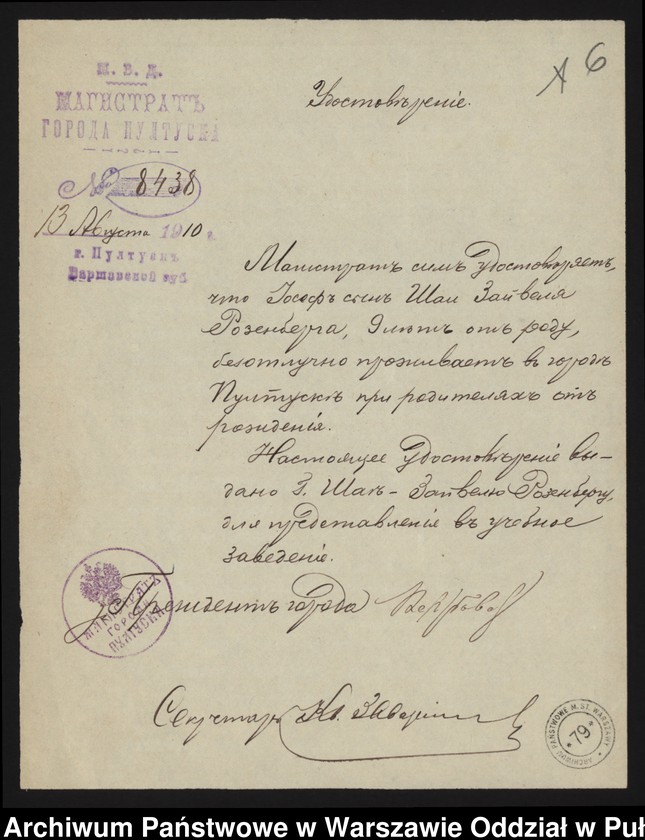 М. В. Д.
МАГИСТРАТЪ
ГОРОДА ПУЛТУСКА
№ 8438
13 Августа 1910 г.
г. Пултускъ
Варшавской губ.
6
Удостовѣреніе.
Магистратъ симъ удостовѣряетъ,
что Іосефъ сынъ Шаи Зайвеля
Розенберга, 9 лѣтъ отъ роду,
безотлучно проживаетъ въ городѣ
Пултускѣ при родителяхъ отъ
рожденія.
Настоящее удостовѣреніе вы-
дано Г. Шаѣ-Зайвелю Розенбергу,
для представленія въ учебное
заведеніе.
Президентъ города
МАГИСТРАТЪ ГОРОДА ПУЛТУСКА
Секретарь
ARCHIWUM PAŃSTWOWE M. ST. WARSZAWY
* 79 *
Archiwum Państwowe w Warszawie Oddział w Puł